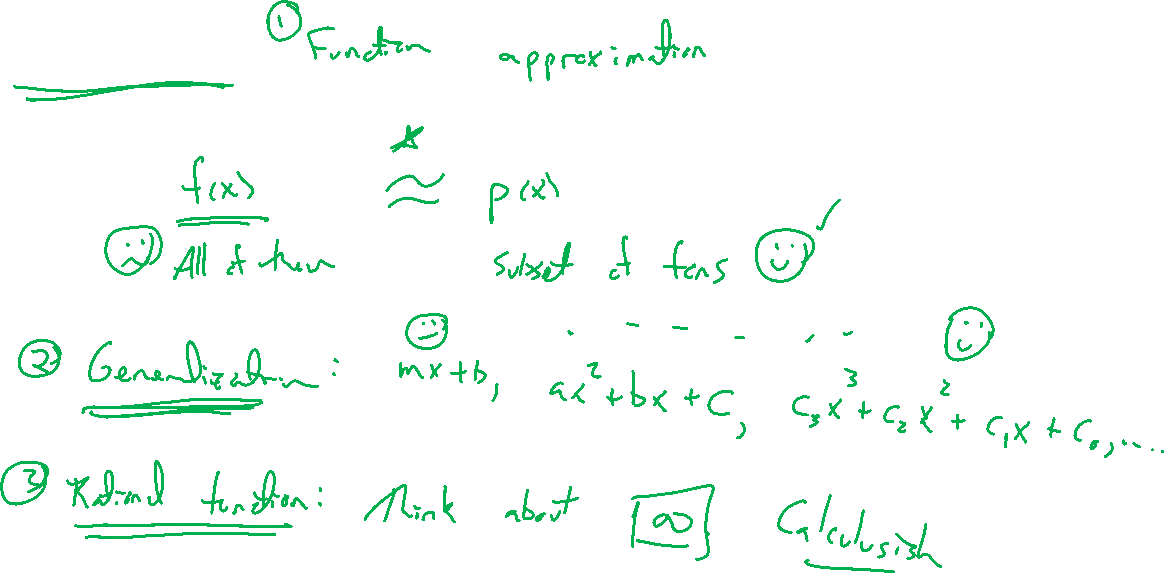 ① Function approximation
f(x) ≈ p(x)
All of them subset of fcns
② Generalization: mx+b, ax²+bx+c, c₃x³+c₂x²+c₁x+c₀,....
③ Rational function: Think about ∞ Calculusish